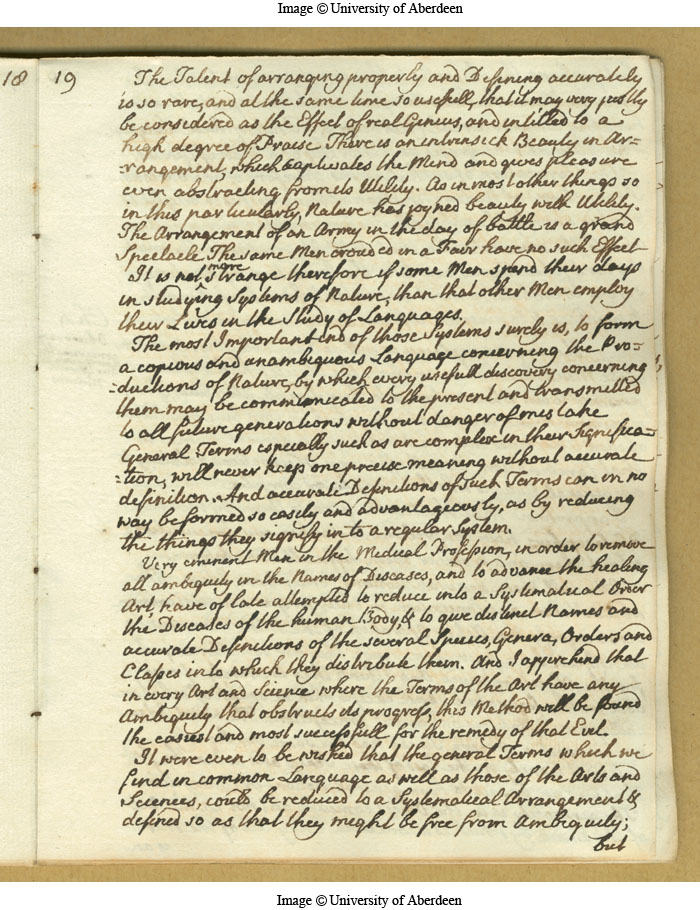 Image © University of Aberdeen
18
19
The Talent of arranging properly and Defining accurately
is so rare, and at the same time so usefull, that it may very justly
be considered as the Effect of real Genius, and intitled to a
high degree of Praise There is an intrinsick Beauty in Ar=
=rangement, which captivates the Mind and gives pleasure
even abstracting from its Utility. As in most other things so
in this particularly, Nature has joyned beauty with Utility.
The Arrangement of an Army in the day of battle is a grand
Spectacle The same Men crouded in a Fair have no such Effect
It is not more strange therefore if some Men spend their days
in studying Systems of Nature, than that other Men employ
their Lives in the Study of Languages.
The most Important End of those Systems surely is, to form
a copious and unambiguous Language concerning the Pro=
=ductions of Nature, by which every usefull discovery concerning
them may be communicated to the present and transmitted
to all future generations without danger of mistake
General Terms especially such as are complex in their Significa=
=tion, will never keep one precise meaning without accurate
definition. And accurate Definitions of such Terms can in no
way be formed so easily and advantageously, as by reducing
the things they signify in to a regular System.
Very eminent Men in the Medical Profession, in order to remove
all ambiguity in the Names of Diseases, and to advance the healing
Art, have of late attempted to reduce into a Systematical Order
the Diseases of the human Body, & to give distinct Names and
accurate Definitions of the several Species, Genera, Orders and
Classes in to which they distribute them. And I apprehend that
in every Art and Science where the Terms of the Art have any
Ambiguity that obstructs its progress, this Method will be found
the easiest and most successfull for the remedy of that Evil.
It were even to be wished that the general Terms which we
find in common Language as well as those of the Arts and
Sciences, could be reduced to a Systematical Arrangement &
defined so as that they might be free from Ambiguity;
but
Image © University of Aberdeen